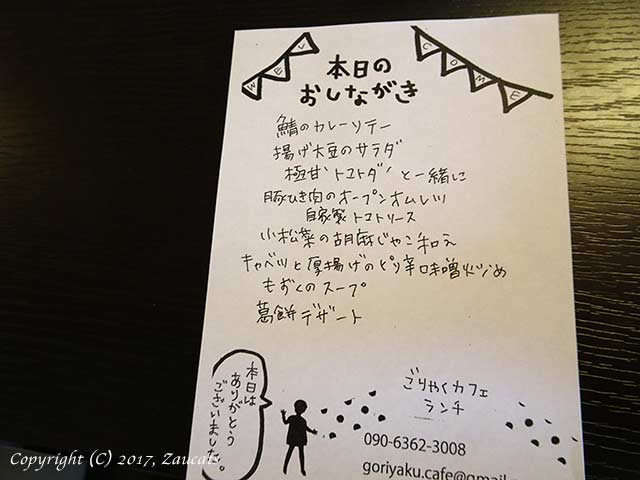 WEL
COME
本日の
おしながき
鯖のカレーソテー
揚げ大豆のサラダ
極甘"トマトダ"と一緒に
豚ひき肉のオープンオムレツ
自家製トマトソース
小松菜の胡麻じゃこ和え
キャベツと厚揚げのピリ辛味噌炒め
もずくのスープ
葛餅デザート
本日は
ありがとう
ございました。
ごりやくカフェ
ランチ
090-6362-3008
goriyaku.cafe@gmail
Copyright (C) 2017, Zaucats